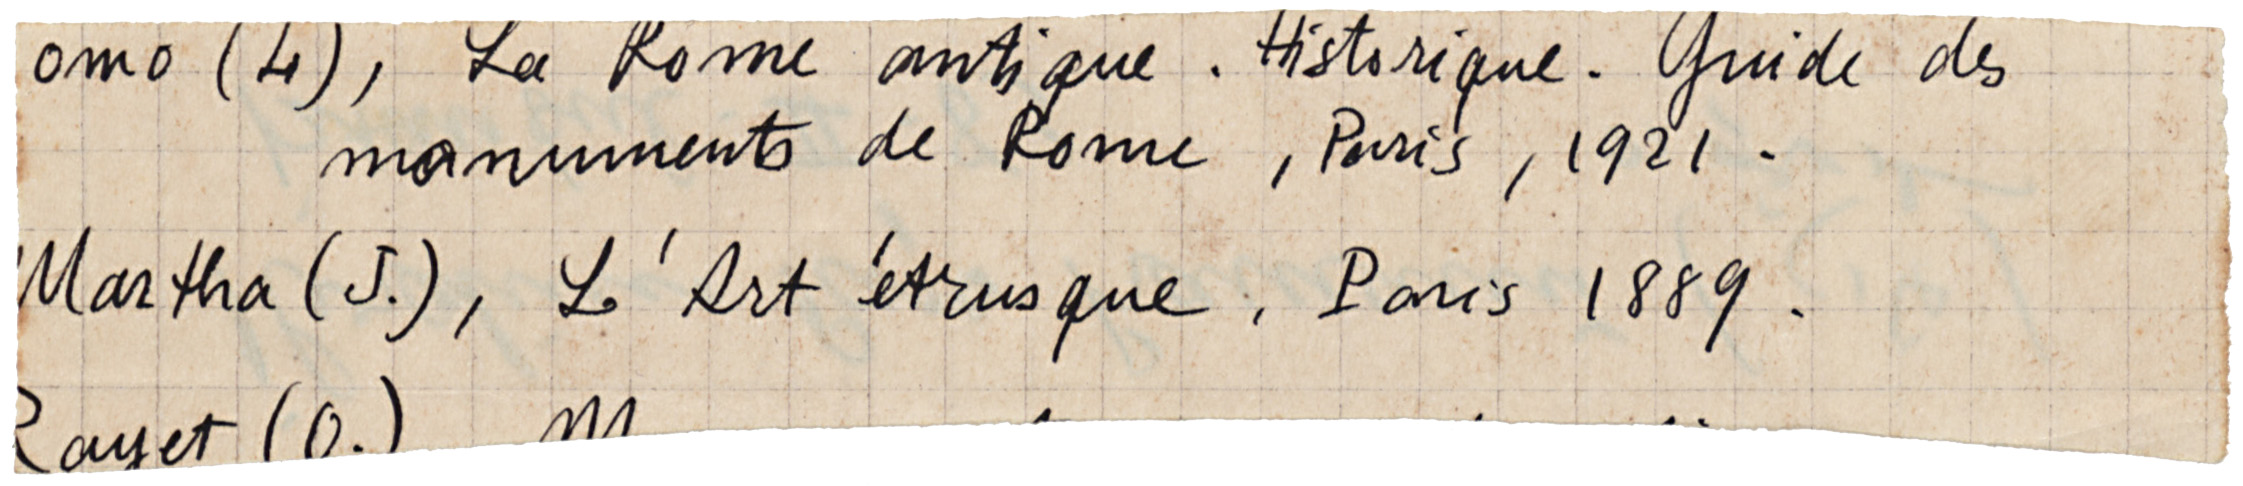 omo (L), La Rome antique. Historique. Guide des
monuments de Rome, Paris, 1921.
Martha (J.), L'Art étrusque, Paris 1889.
Rayet (O.)